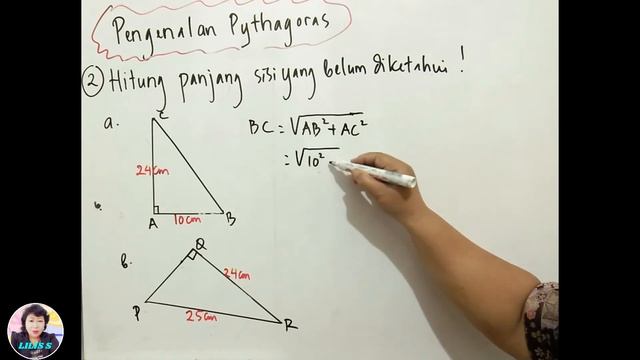 Pengenalan Pythagoras
2 Hitung panjang sisi yang belum diketahui !
a.
C
24cm
A
10cm
B
BC = √AB²+AC²
= √10²
b.
b.
Q
24cm
P
25cm
R
LILIS S